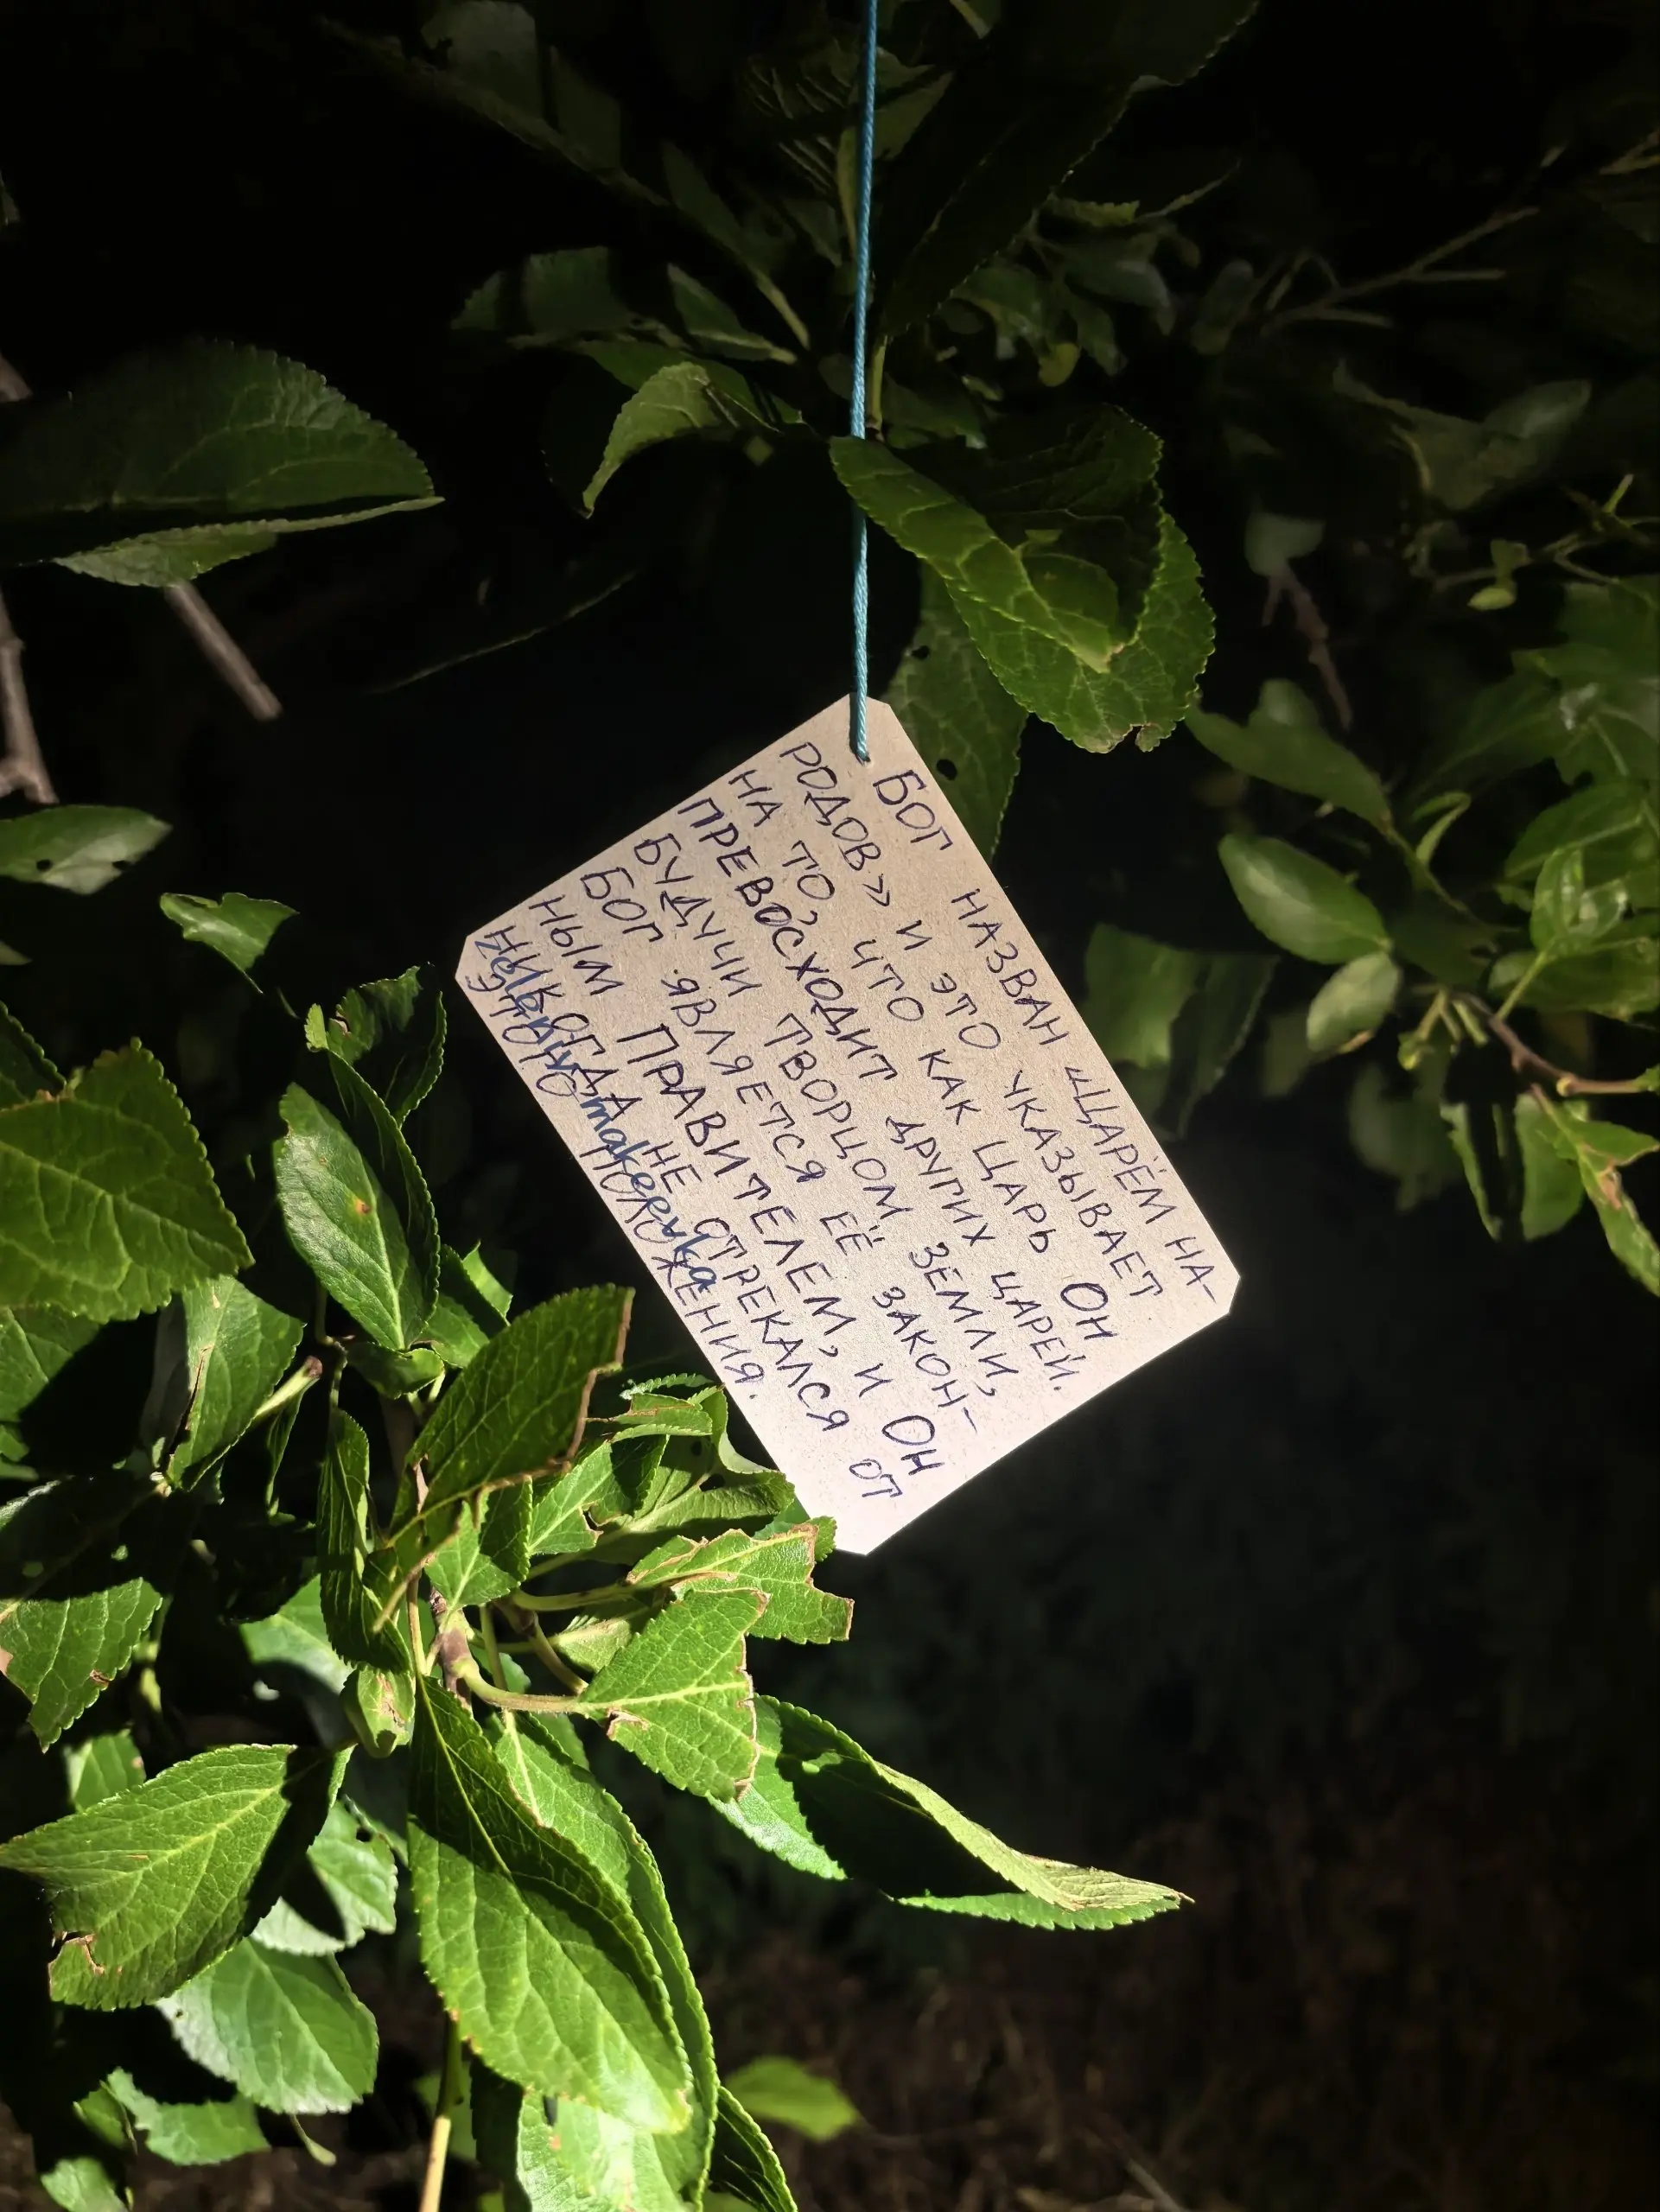 БОГ НАЗВАН «ЦАРЁМ НА-
РОДОВ» И ЭТО УКАЗЫВАЕТ
НА ТО, ЧТО КАК ЦАРЬ ОН
ПРЕВОСХОДИТ ДРУГИХ ЦАРЕЙ.
БУДУЧИ ТВОРЦОМ ЗЕМЛИ,
БОГ ЯВЛЯЕТСЯ ЕЁ ЗАКОН-
НЫМ ПРАВИТЕЛЕМ, И ОН
НИКОГДА НЕ ОТРЕКАЛСЯ ОТ
ЭТОГО ПОЛОЖЕНИЯ.
zeleniy makeevka